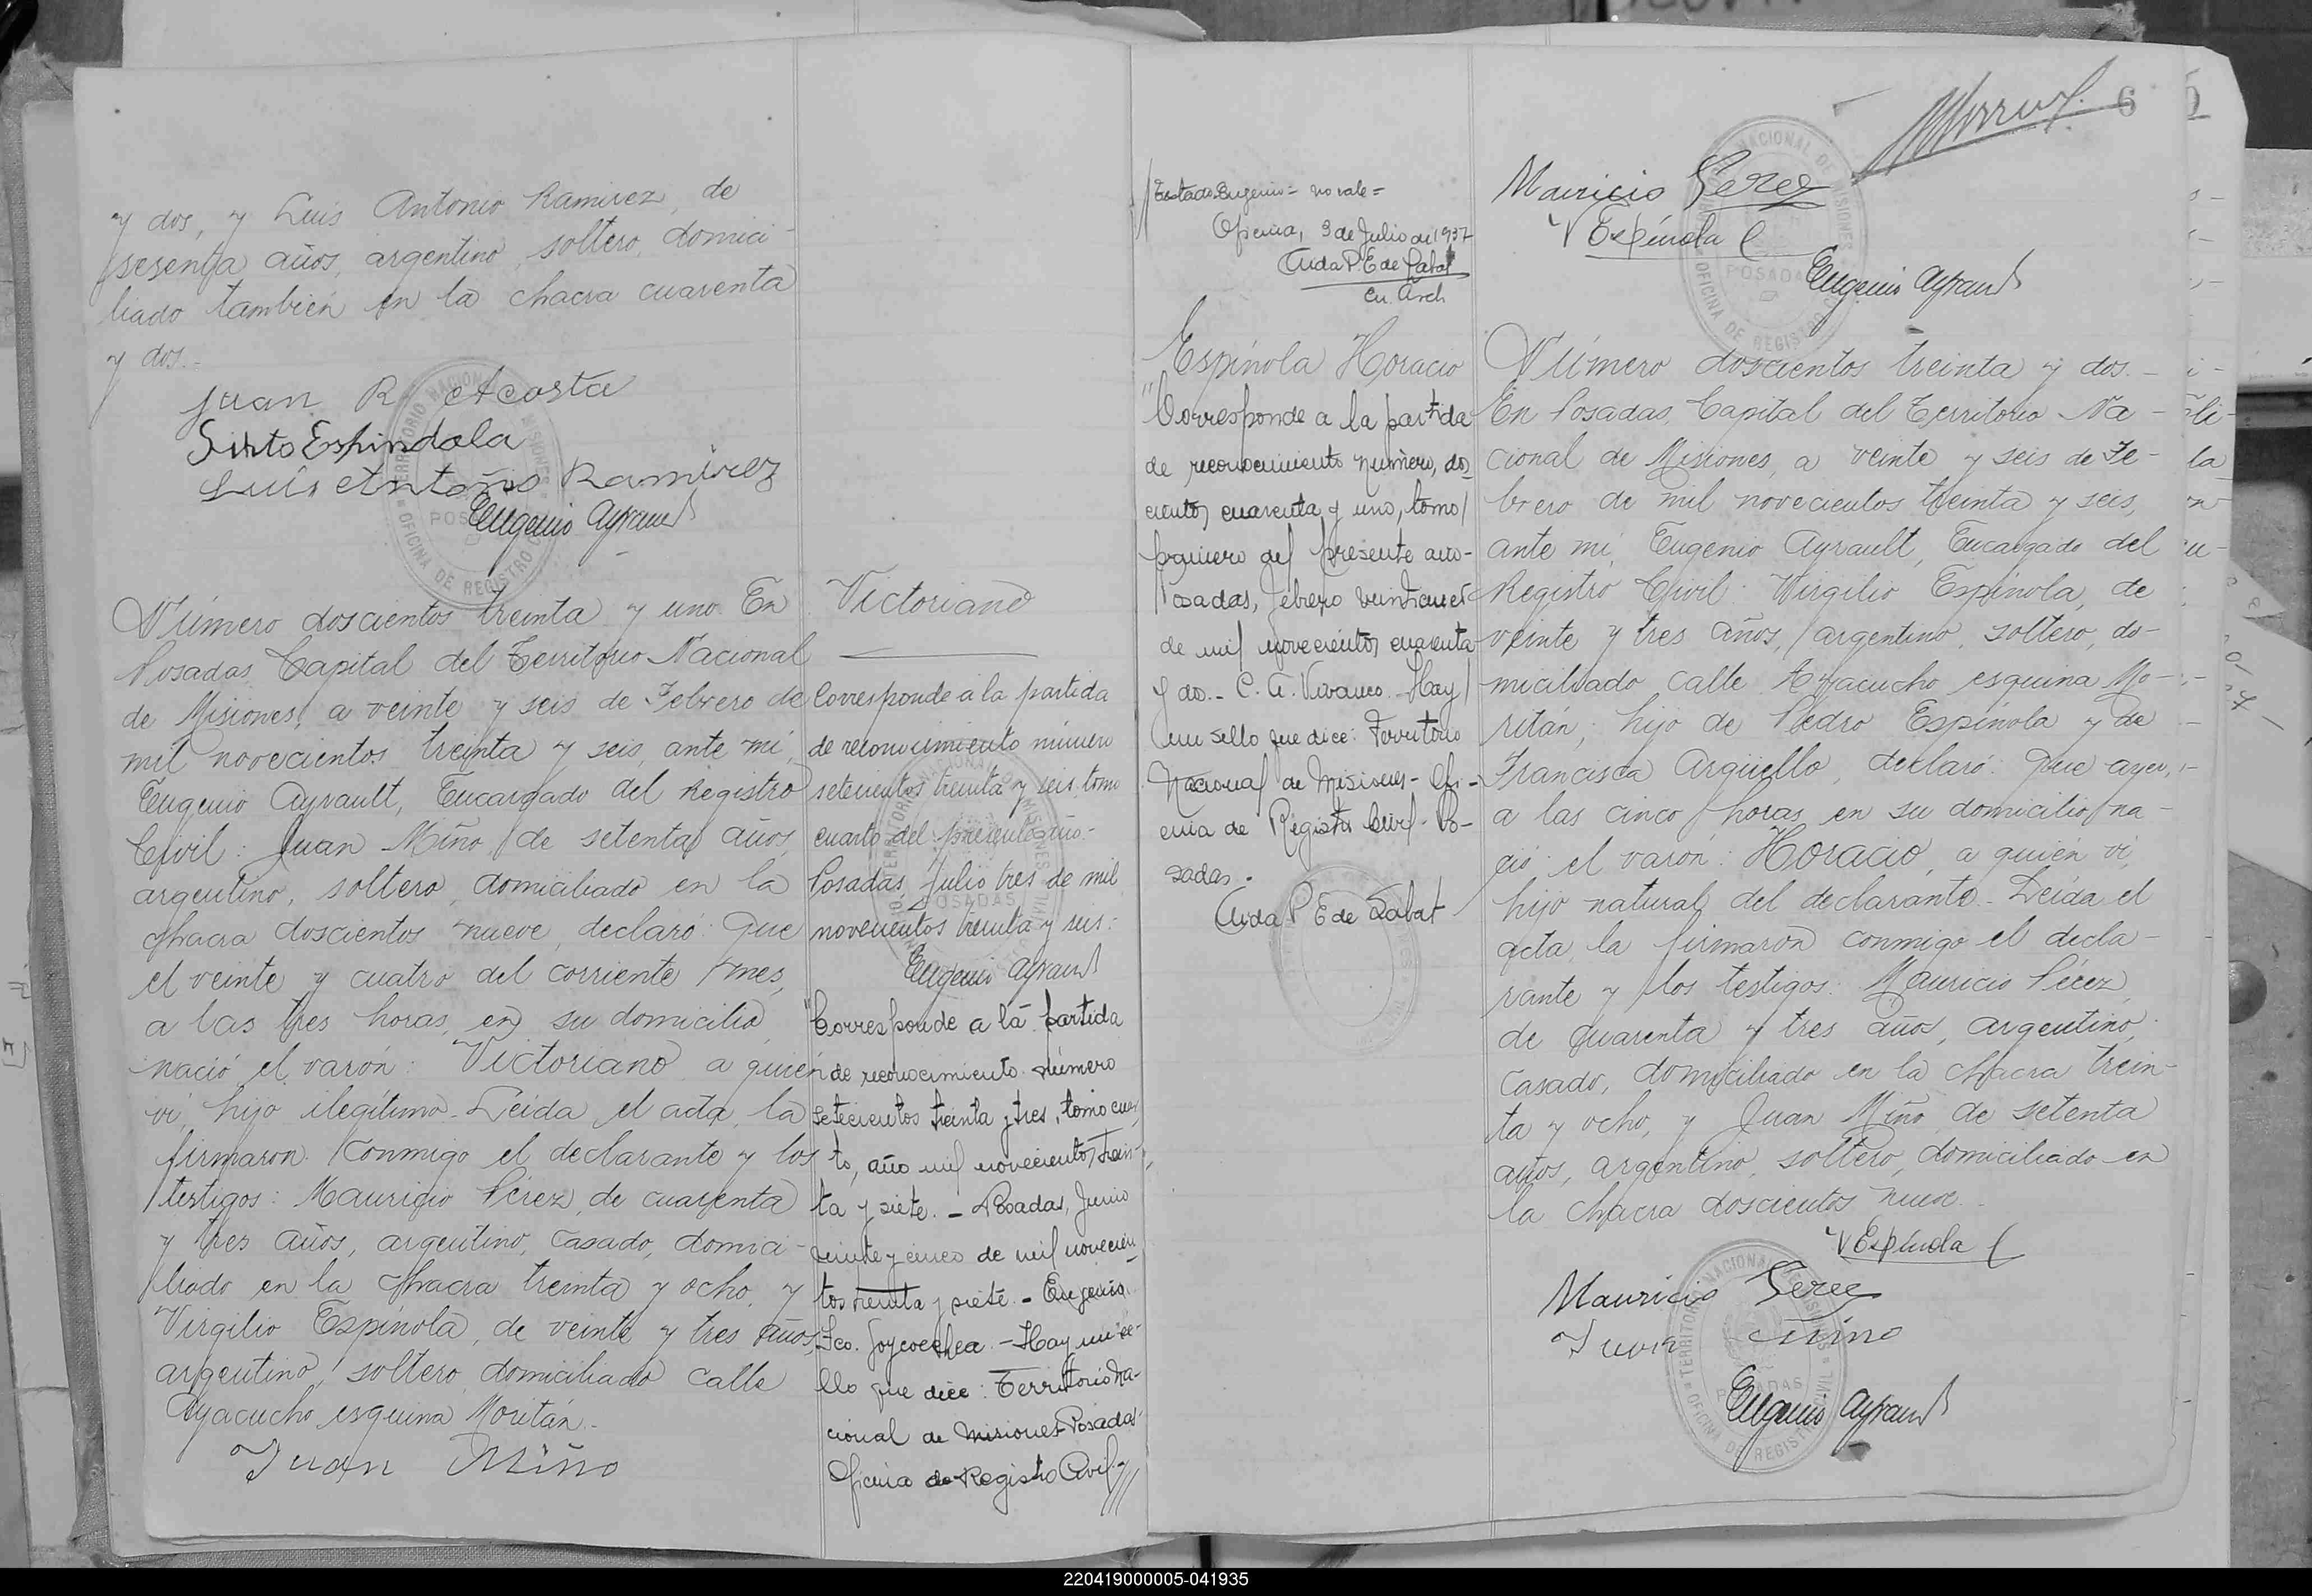 y dos, y Luis Antonio Ramirez, de
sesenta años, argentino, soltero, domici-
liado también en la chacra cuarenta
y dos.-
Juan R. Acosta
Sixto Espindola
Luis Antonio Ramirez
Eugenio Ayrault
Número doscientos treinta y uno. En
Posadas Capital del Territorio Nacional
de Misiones, a veinte y seis de Febrero de
mil novecientos treinta y seis, ante mi,
Eugenio Ayrault, Encargado del Registro
Civil: Juan Miño, de setenta años,
argentino, soltero, domiciliado en la
chacra doscientos nueve, declaró: Que
el veinte y cuatro del corriente mes,
a las tres horas, en su domicilio,
nació el varón: Victoriano a quien
vi, hijo ilegítimo.- Leída el acta, la
firmaron conmigo el declarante y los
testigos: Mauricio Pérez, de cuarenta
y tres años, argentino, casado, domici-
liado en la chacra treinta y ocho, y
Virgilio Espínola, de veinte y tres años,
argentino, soltero, domiciliado calle
Ayacucho esquina Moritán.-
Juan Miño
Victoriano
Corresponde a la partida
de reconocimiento número
setecientos treinta y seis tomo
cuarto del presente año.-
Posadas, Julio tres de mil
novecientos treinta y seis:
Eugenio Ayrault
"Corresponde a la partida
de reconocimiento número
setecientos treinta y tres, tomo cuar,
to, año mil novecientos trein-
ta y siete.- Posadas, Junio
veinte y cinco de mil novecien,
tos treinta y siete.- Eugenio
Fco. Goycoechea.- Hay un se-
llo que dice: Territorio Na-
cional de Misiones-Posadas-
Oficina de Registro Civil-
Testado: Eugenio = no vale =
Oficina, 3 de Julio de 1937
Aida P. E. de Sabat
En. Arch
Espínola Horacio
"Corresponde a la partida
de reconocimiento número, dos
cientos cuarenta y uno, tomo
primero del presente año-
Posadas, febrero
de mil novecientos cuarenta
y dos.- C. A. Vivanco.- Hay
un sello que dice: Territorio
Nacional de Misiones- Ofi-
cina de Registro Civil- Po-
sadas.
Aida P E de Sabat
6
Mauricio Perez
V Espínola
Eugenio Ayrault
Número doscientos treinta y dos.-
En Posadas, Capital del Territorio Na-
cional de Misiones, a veinte y seis de Fe-
brero de mil novecientos treinta y seis,
ante mi, Eugenio Ayrault, Encargado del
Registro Civil: Virgilio Espínola, de
veinte y tres años, argentino, soltero, do-
miciliado calle Ayacucho esquina Mo-
ritán; hijo de Pedro Espínola y de
Francisca Argüello, declaró: Que ayer,
a las cinco horas, en su domicilio, na-
ció el varón: Horacio, a quien vi,
hijo natural del declarante.- Leída el
acta, la firmaron conmigo el decla-
rante y los testigos: Mauricio Pérez,
de cuarenta y tres años, argentino,
casado, domiciliado en la chacra trein-
ta y ocho, y Juan Miño, de setenta
años, argentino, soltero, domiciliado en
la chacra doscientos nueve.-
V Espínola
Mauricio Perez
Juan Miño
Eugenio Ayrault
TERRITORIO NACIONAL DE MISIONES
OFICINA DE REGISTRO CIVIL
POSADAS
220419000005-041935